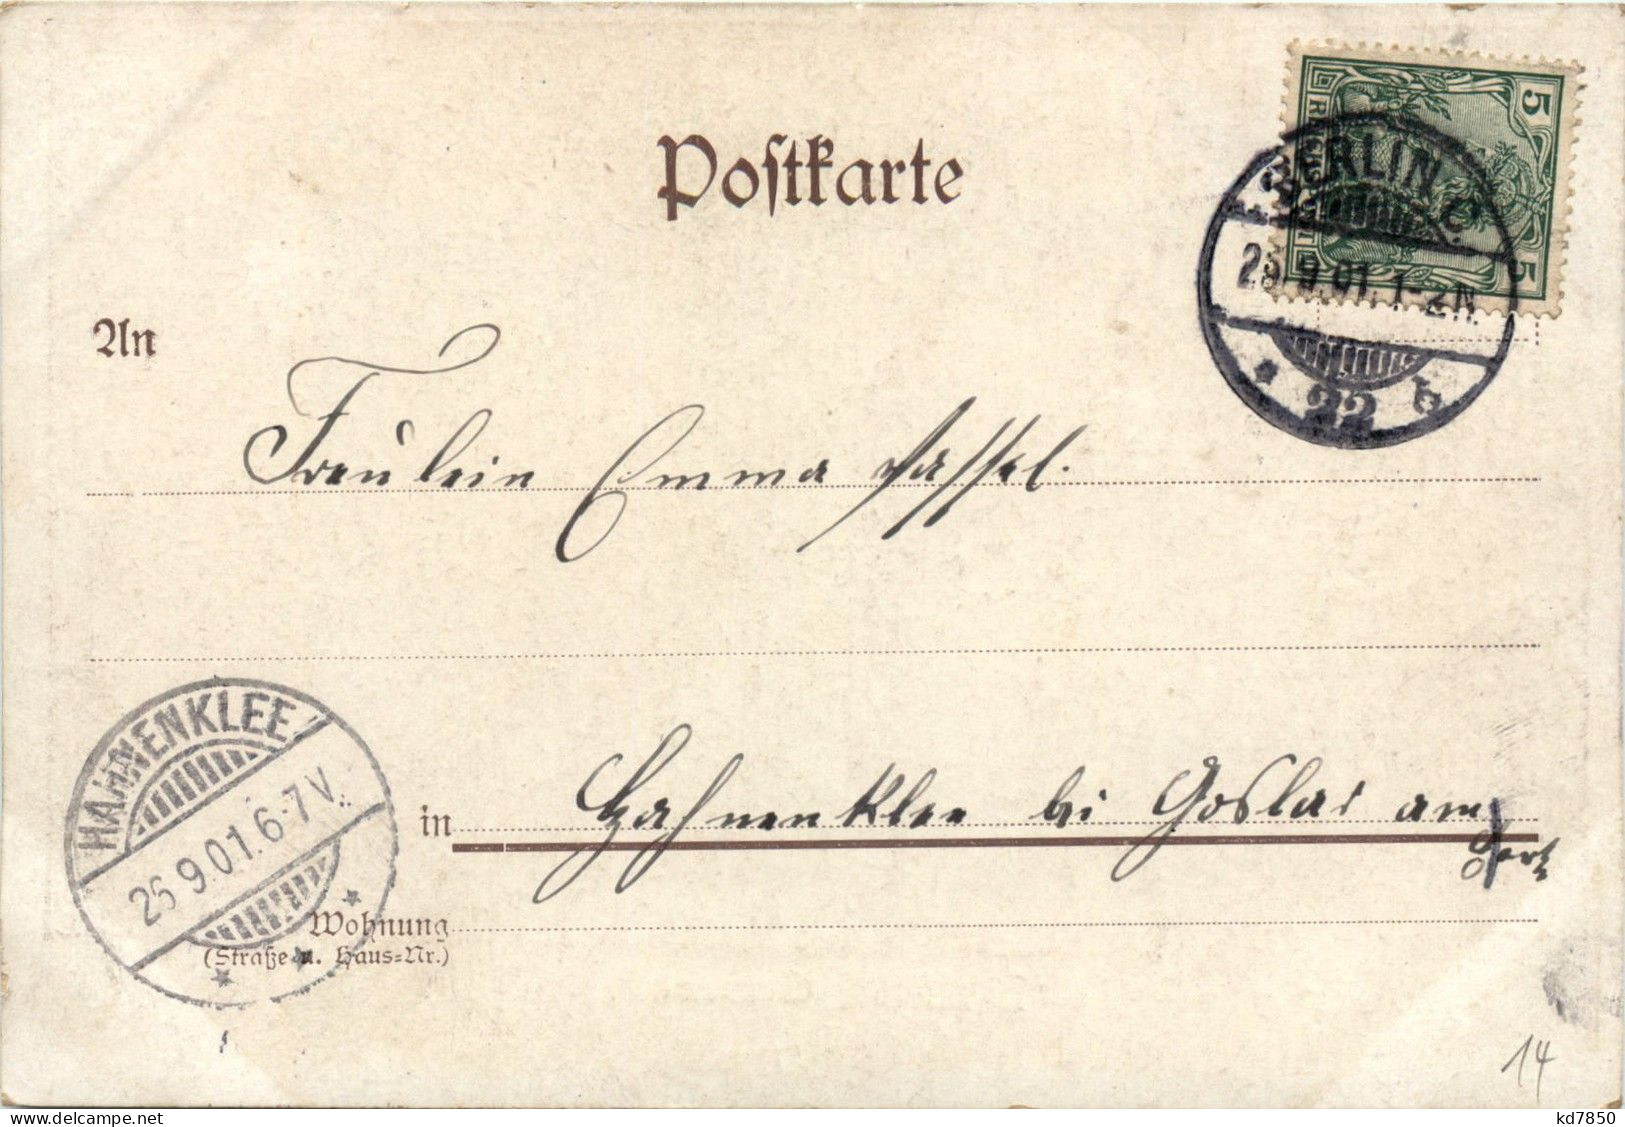 Postkarte
5 5
BERLIN C.
9.01. 1-2N.
* 22 b
An
Fräulein Emma Sassel.
HAHNENKLEE
26 9.01. 6-7V.
in Hahnenklee bei Goslar am
Harz
Wohnung
(Straße u. Haus=Nr.)
14
www.delcampe.net
kd7850